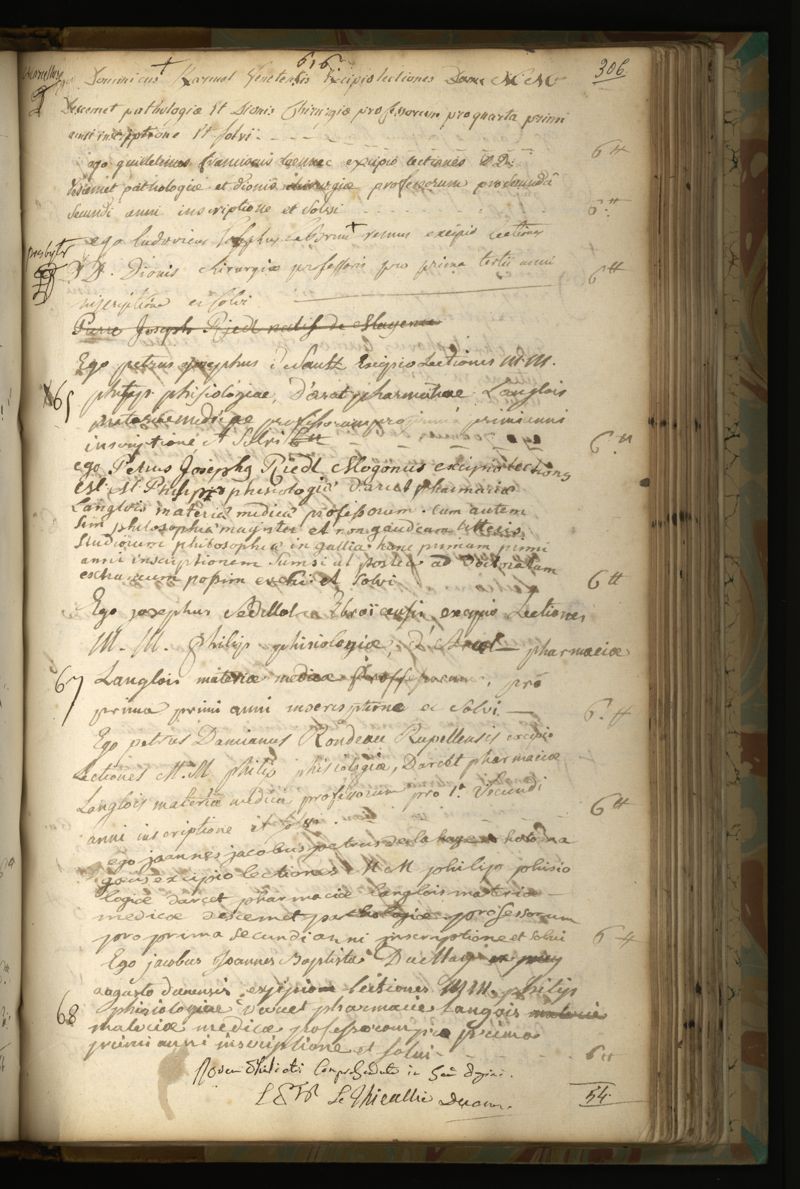 616
306
Dominicus Karmel excipio lectiones
Descemet pathologiæ et Dionis chirurgiæ professorum pro quarta primi
anni inscriptione et solvi
6 ₶
ego guillelmus franciscus Laennec excipio lectiones D.D.
descemet pathologiæ et dionis chirurgiæ professorum pro secunda
secundi anni inscriptione et solvi
6 ₶
presbyter
ego ludovicus excipio lectiones
D. Dionis chirurgiæ professoris pro prima tertii anni
6 ₶
inscriptione et solvi
Pierre Joseph Riedl natif de Mayence
Ego petrus josephus excipio Lectiones M.M.
65
philip phisiologiae, D'arcet pharmaciae Langlois
materiae medicae professorum pro primi anni
inscriptione et solvi 6 ₶
6 ₶
ego Petrus Josephus Riedl Mogonus excipio lectiones
M. M. Philip phisiologiæ D'arcet pharmaciæ
Langlois materiæ medicæ professorum. cum autem
sim philosophiæ magister et non gaudeam litteris
studiorum philosophiæ in gallia hanc primam primi
anni inscriptionem sumsi ut postea ad doctoratum
possim et solvi
6 ₶
Ego josephus Sedillot Ebroicensis excipio Lectiones
M. M. philip phisiologiæ, d'Arcet pharmaciæ
67
Langlois materiæ medicæ professorum, pro
prima primi anni inscriptione et solvi
6 ₶
Ego petrus Damianus Rondeau Rupellensis excipio
Lectiones M.M philip phisiologiæ, Darcet pharmaciæ
Langlois materiæ medicæ professorum pro 1ª Secundi
6 ₶
anni inscriptione et solvi.
ego joannes jacobus petrus de la haye
excipio lectiones M M philip phisio
logiæ darcet pharmaciæ langlois materiæ
medicæ descemet pathologiæ professorum
pro prima secundi anni inscriptione et solvi
6 ₶
Ego jacobus Joannes Baptista
augustodunensis, excipio lectiones MM. philip
68
phisiologiae darcet pharmaciae Langlois materie
materiæ medicæ professorum pro prima
primi anni inscriptione et solvi
6 ₶
Novem Studiosi comprehenduntur in hac pagina.
Le Thieullier Decanus.
54.